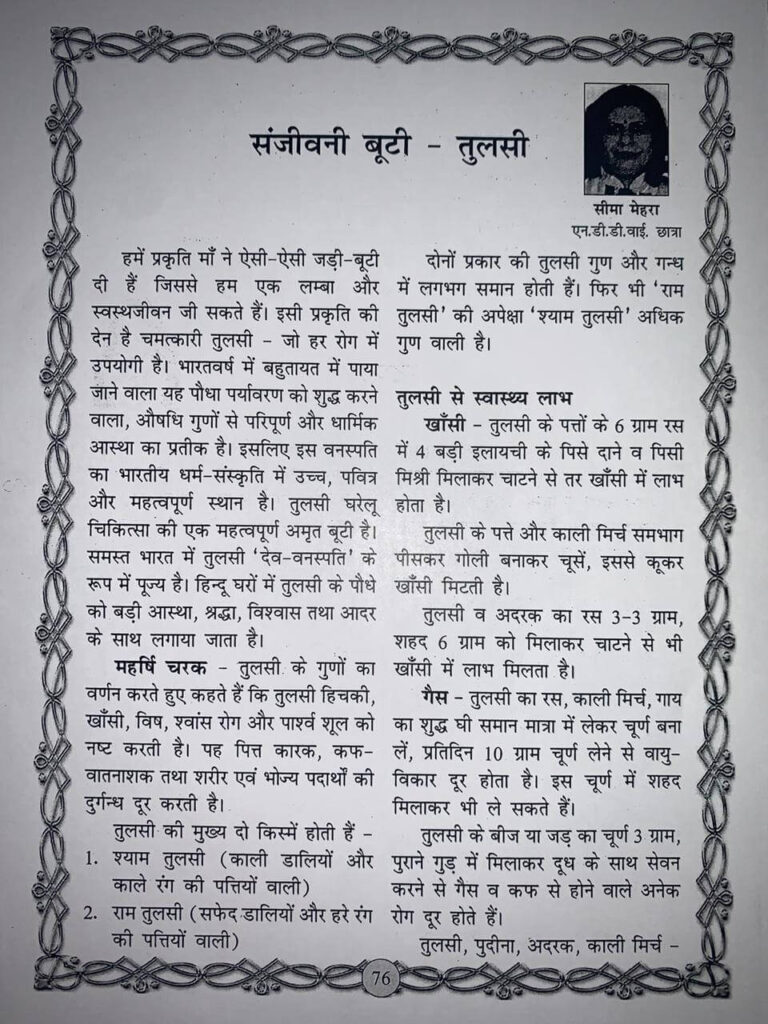 संजीवनी बूटी - तुलसी
सीमा मेहरा
एन.डी.डी.वाई. छात्रा
हमें प्रकृति माँ ने ऐसी-ऐसी जड़ी-बूटी
दी हैं जिससे हम एक लम्बा और
स्वस्थजीवन जी सकते हैं। इसी प्रकृति की
देन है चमत्कारी तुलसी - जो हर रोग में
उपयोगी है। भारतवर्ष में बहुतायत में पाया
जाने वाला यह पौधा पर्यावरण को शुद्ध करने
वाला, औषधि गुणों से परिपूर्ण और धार्मिक
आस्था का प्रतीक है। इसलिए इस वनस्पति
का भारतीय धर्म-संस्कृति में उच्च, पवित्र
और महत्वपूर्ण स्थान है। तुलसी घरेलू
चिकित्सा की एक महत्वपूर्ण अमृत बूटी है।
समस्त भारत में तुलसी 'देव-वनस्पति' के
रूप में पूज्य है। हिन्दू घरों में तुलसी के पौधे
को बड़ी आस्था, श्रद्धा, विश्वास तथा आदर
के साथ लगाया जाता है।
महर्षि चरक - तुलसी के गुणों का
वर्णन करते हुए कहते हैं कि तुलसी हिचकी,
खाँसी, विष, श्वांस रोग और पार्श्व शूल को
नष्ट करती है। पह पित्त कारक, कफ-
वातनाशक तथा शरीर एवं भोज्य पदार्थों की
दुर्गन्ध दूर करती है।
तुलसी की मुख्य दो किस्में होती हैं -
1. श्याम तुलसी (काली डालियों और
काले रंग की पत्तियों वाली)
2. राम तुलसी (सफेद डालियों और हरे रंग
की पत्तियों वाली)
दोनों प्रकार की तुलसी गुण और गन्ध
में लगभग समान होती हैं। फिर भी 'राम
तुलसी' की अपेक्षा 'श्याम तुलसी' अधिक
गुण वाली है।
तुलसी से स्वास्थ्य लाभ
खाँसी - तुलसी के पत्तों के 6 ग्राम रस
में 4 बड़ी इलायची के पिसे दाने व पिसी
मिश्री मिलाकर चाटने से तर खाँसी में लाभ
होता है।
तुलसी के पत्ते और काली मिर्च समभाग
पीसकर गोली बनाकर चूसें, इससे कूकर
खाँसी मिटती है।
तुलसी व अदरक का रस 3-3 ग्राम,
शहद 6 ग्राम को मिलाकर चाटने से भी
खाँसी में लाभ मिलता है।
गैस - तुलसी का रस, काली मिर्च, गाय
का शुद्ध घी समान मात्रा में लेकर चूर्ण बना
लें, प्रतिदिन 10 ग्राम चूर्ण लेने से वायु-
विकार दूर होता है। इस चूर्ण में शहद
मिलाकर भी ले सकते हैं।
तुलसी के बीज या जड़ का चूर्ण 3 ग्राम,
पुराने गुड़ में मिलाकर दूध के साथ सेवन
करने से गैस व कफ से होने वाले अनेक
रोग दूर होते हैं।
तुलसी, पुदीना, अदरक, काली मिर्च -
76